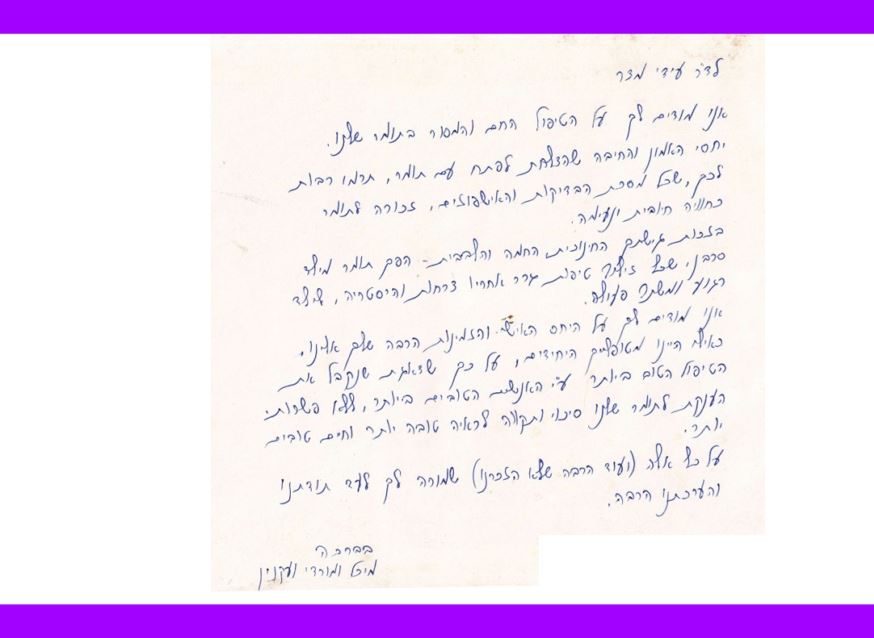 לד"ר עידי מצר
אנו מודים לך על הטיפול החם והמסור בתומר שלנו.
יחסי האמון והחיבה שהצלחת לפתח עם תומר, תרמו רבות
לכך, שכל מסכת הבדיקות והאישפוזים, זכורה לתומר
כחוויה חיובית ונעימה.
בזכות גישתך החינוכית, החמה והלבבית - הפך תומר מילד
סרבן, שכל זילוף טיפות גרר אחריו צרחות והיסטריה, לילד
רגוע ומשתף פעולה.
אנו מודים לך על היחס האישי והזמינות הרבה שלך אלינו,
כאילו היינו מטופליך היחידים, על כך שדאגת שנקבל את
הטיפול הטוב ביותר ע"י האנשים הטובים ביותר, ללא פשרות.
הענקת לתומר שלנו סיכוי ותקווה לראיה טובה יותר וחיים טובים
יותר.
על כל אלה (ועוד הרבה שלא הזכרנו) שמורה לך לעד תודתנו
והערכתנו הרבה.
בברכה
ומורדי ועקנין